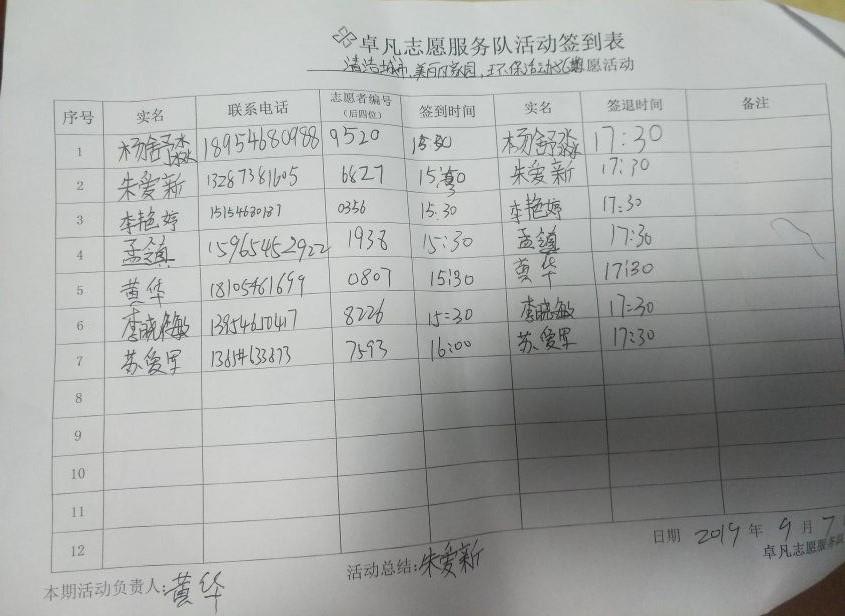 卓凡志愿服务队活动签到表
清洁城市,美丽家园,环保活动志愿活动
序号 实名 联系电话 志愿者编号（后四位） 签到时间 实名 签退时间 备注
1 杨舒淼 18954680988 9520 15:30 杨舒淼 17:30
2 朱爱新 13287381605 6827 15:30 朱爱新 17:30
3 李艳婷 15154630187 0356 15:30 李艳婷 17:30
4 孟镇 15965452922 1938 15:30 孟镇 17:30
5 黄华 18105461699 0807 15:30 黄华 17:30
6 李晓敏 13954610417 8226 15:30 李晓敏 17:30
7 苏爱军 7593 16:00 苏爱军 17:30
8
9
10
11
12
日期 2019年9月7
卓凡志愿服务队
本期活动负责人:黄华 活动总结:朱爱新